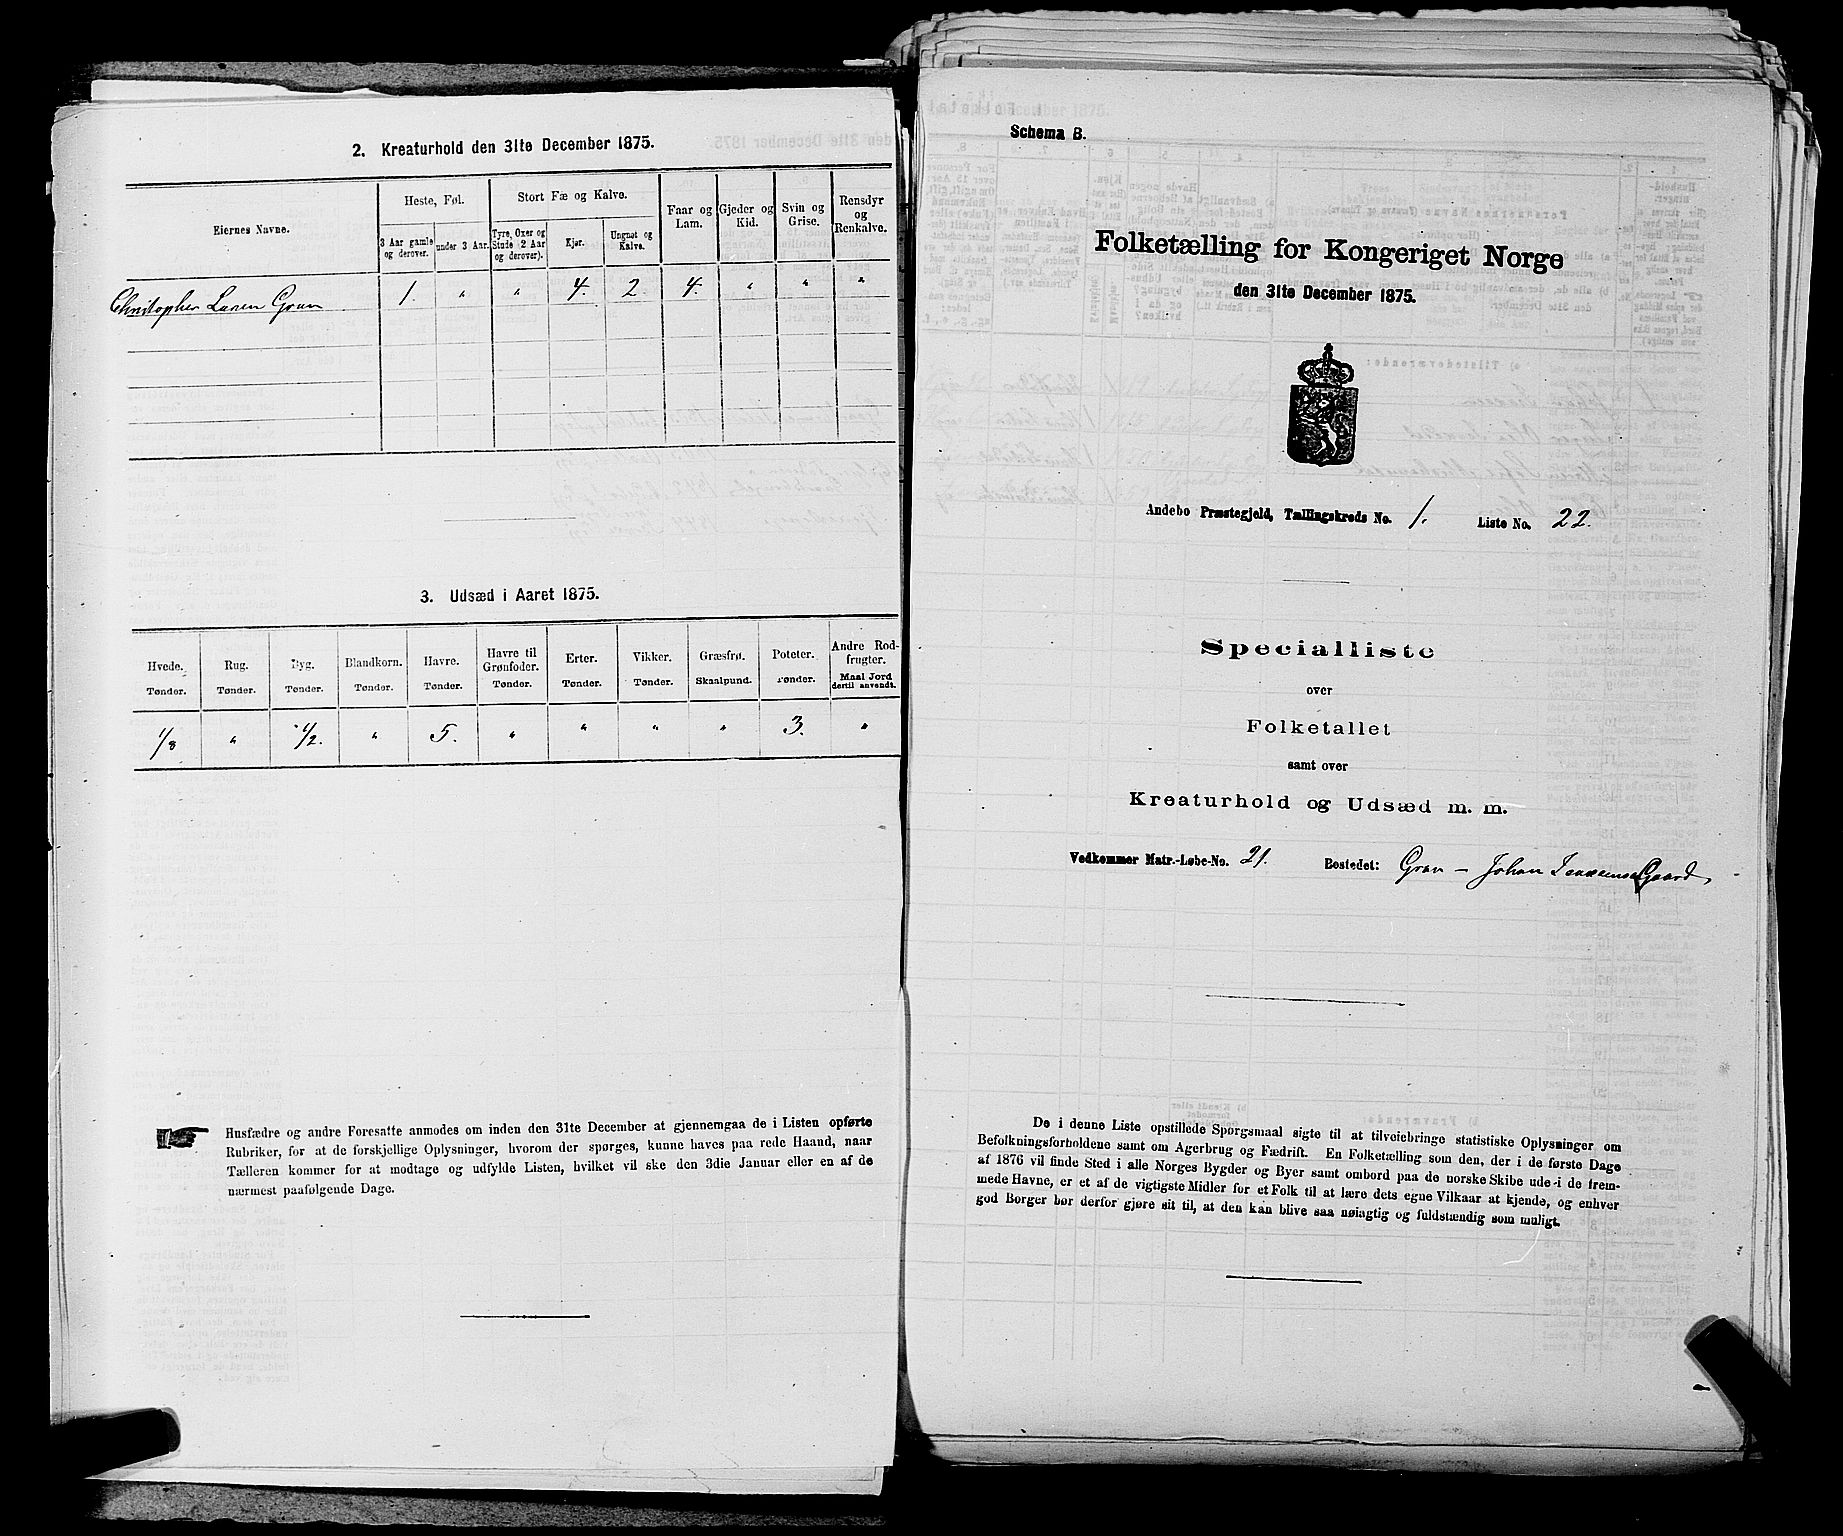 2. Kreaturhold den 31te December 1875.
Eiernes Navne.
Heste, Føl.
Stort Fæ og Kalve.
Faar og Lam.
Gjeder og Kid.
Svin og Grise.
Rensdyr og Renkalve.
3 Aar gamle og derover.
under 3 Aar.
Tyre, Oxer og Stude 2 Aar og derover).
Kjør.
Ungnøt og Kalve.
Christopher Laren Gran 1. " " 4. 2. 4. " " "
3. Udsæd i Aaret 1875.
Hvede. Rug. Byg. Blandkorn. Havre. Havre til Grønfoder. Erter. Vikker. Græsfrø. Poteter. Andre Rodfrugter.
Tønder. Tønder. Tønder. Tønder. Tønder. Tønder. Tønder. Tønder. Skaalpund. Tønder. Maal Jord dertil anvendt.
1/8 " 1/2. " 5. " " " " 3. "
Husfædre og andre Foresatte anmodes om inden den 31te December at gjennemgaa de i Listen opførte
Rubriker, for at de forskjellige Oplysninger, hvorom der spørges, kunne haves paa rede Haand, naar
Tælleren kommer for at modtage og udfylde Listen, hvilket vil ske den 3die Januar eller en af de
nærmest paafølgende Dage.
Schema B.
Folketælling for Kongeriget Norge
den 31te December 1875.
Andebo Præstegjeld, Tællingskreds No. 1. Liste No. 22.
Specialliste
over
Folketallet
samt over
Kreaturhold og Udsæd m. m.
Vedkommer Matr.-Løbe-No. 21. Bostedet: Gran – Johan Gaard,
De i denne Liste opstillede Spørgsmaal sigte til at tilveiebringe statistiske Oplysninger om
Befolkningsforholdene samt om Agerbrug og Fædrift. En Folketælling som den, der i de første Dage
af 1876 vil finde Sted i alle Norges Bygder og Byer samt ombord paa de norske Skibe ude i de frem-
mede Havne, er et af de vigtigste Midler for et Folk til at lære dets egne Vilkaar at kjende, og enhver
god Borger bør derfor gjøre sit til, at den kan blive saa nøiagtig og fuldstændig som muligt.